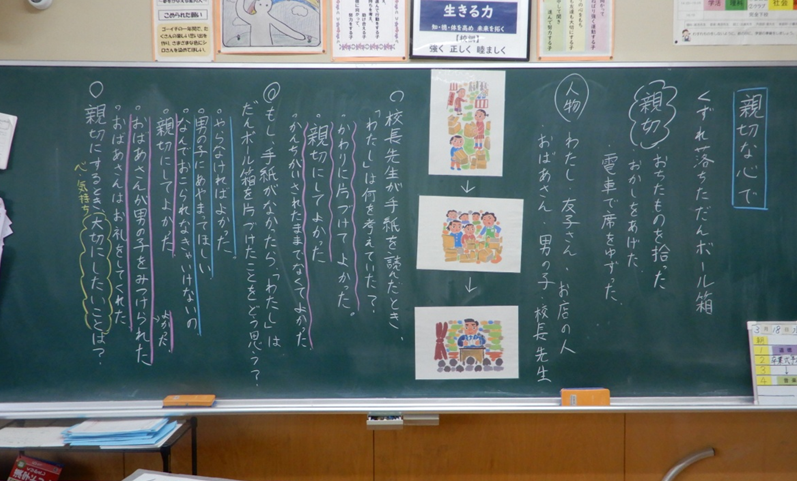 親切な心で
くずれ落ちただんボール箱
親切
おちたものを拾った
おかしをあげた。
電車で席をゆずった。
人物
わたし・友子さん・お店の人
おばあさん・男の子・校長先生
↓
↓
○校長先生が手紙を読んだとき、
「わたし」は何を考えていた?
・かわりに片づけてよかった。
・親切にしてよかった
・かんちがいされたままでなくてよかった。
◎もし、手紙がなかたら、「わたし」は
だんボール箱を片づけたことをどう思う?
・やらなければよかった
・男の子にあやまってほしい
・なんでおこられなきゃいけないの
・親切にしてよかった
・おばあさんが男の子をみつけられた
よかった
・おばあさんはお礼をしてくれた
○親切にするとき大切にしたいことは?
心・気持ち
生きる力
知・徳・体を高め 未来を拓く
強く 正しく 睦ましく
こめられた願い
学活
理科
社会